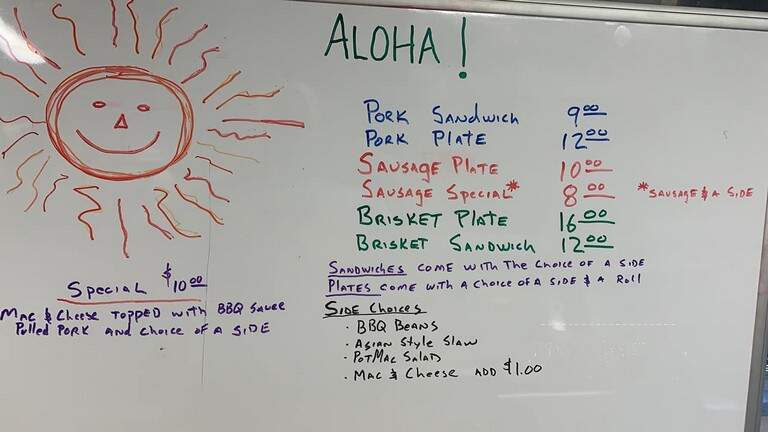 ALOHA!
PORK SANDWICH 9.00
PORK PLATE 12.00
SAUSAGE PLATE 10.00
SAUSAGE SPECIAL* 8.00 *SAUSAGE & A SIDE
BRISKET PLATE 16.00
BRISKET SANDWICH 12.00
SANDWICHES COME WITH THE CHOICE OF A SIDE
PLATES COME WITH A CHOICE OF A SIDE & A ROLL
SPECIAL $10.00
MAC & CHEESE TOPPED WITH BBQ SAUCE
PULLED PORK AND CHOICE OF A SIDE
SIDE CHOICES
· BBQ BEANS
· ASIAN STYLE SLAW
· POTMAC SALAD
· MAC & CHEESE ADD $1.00